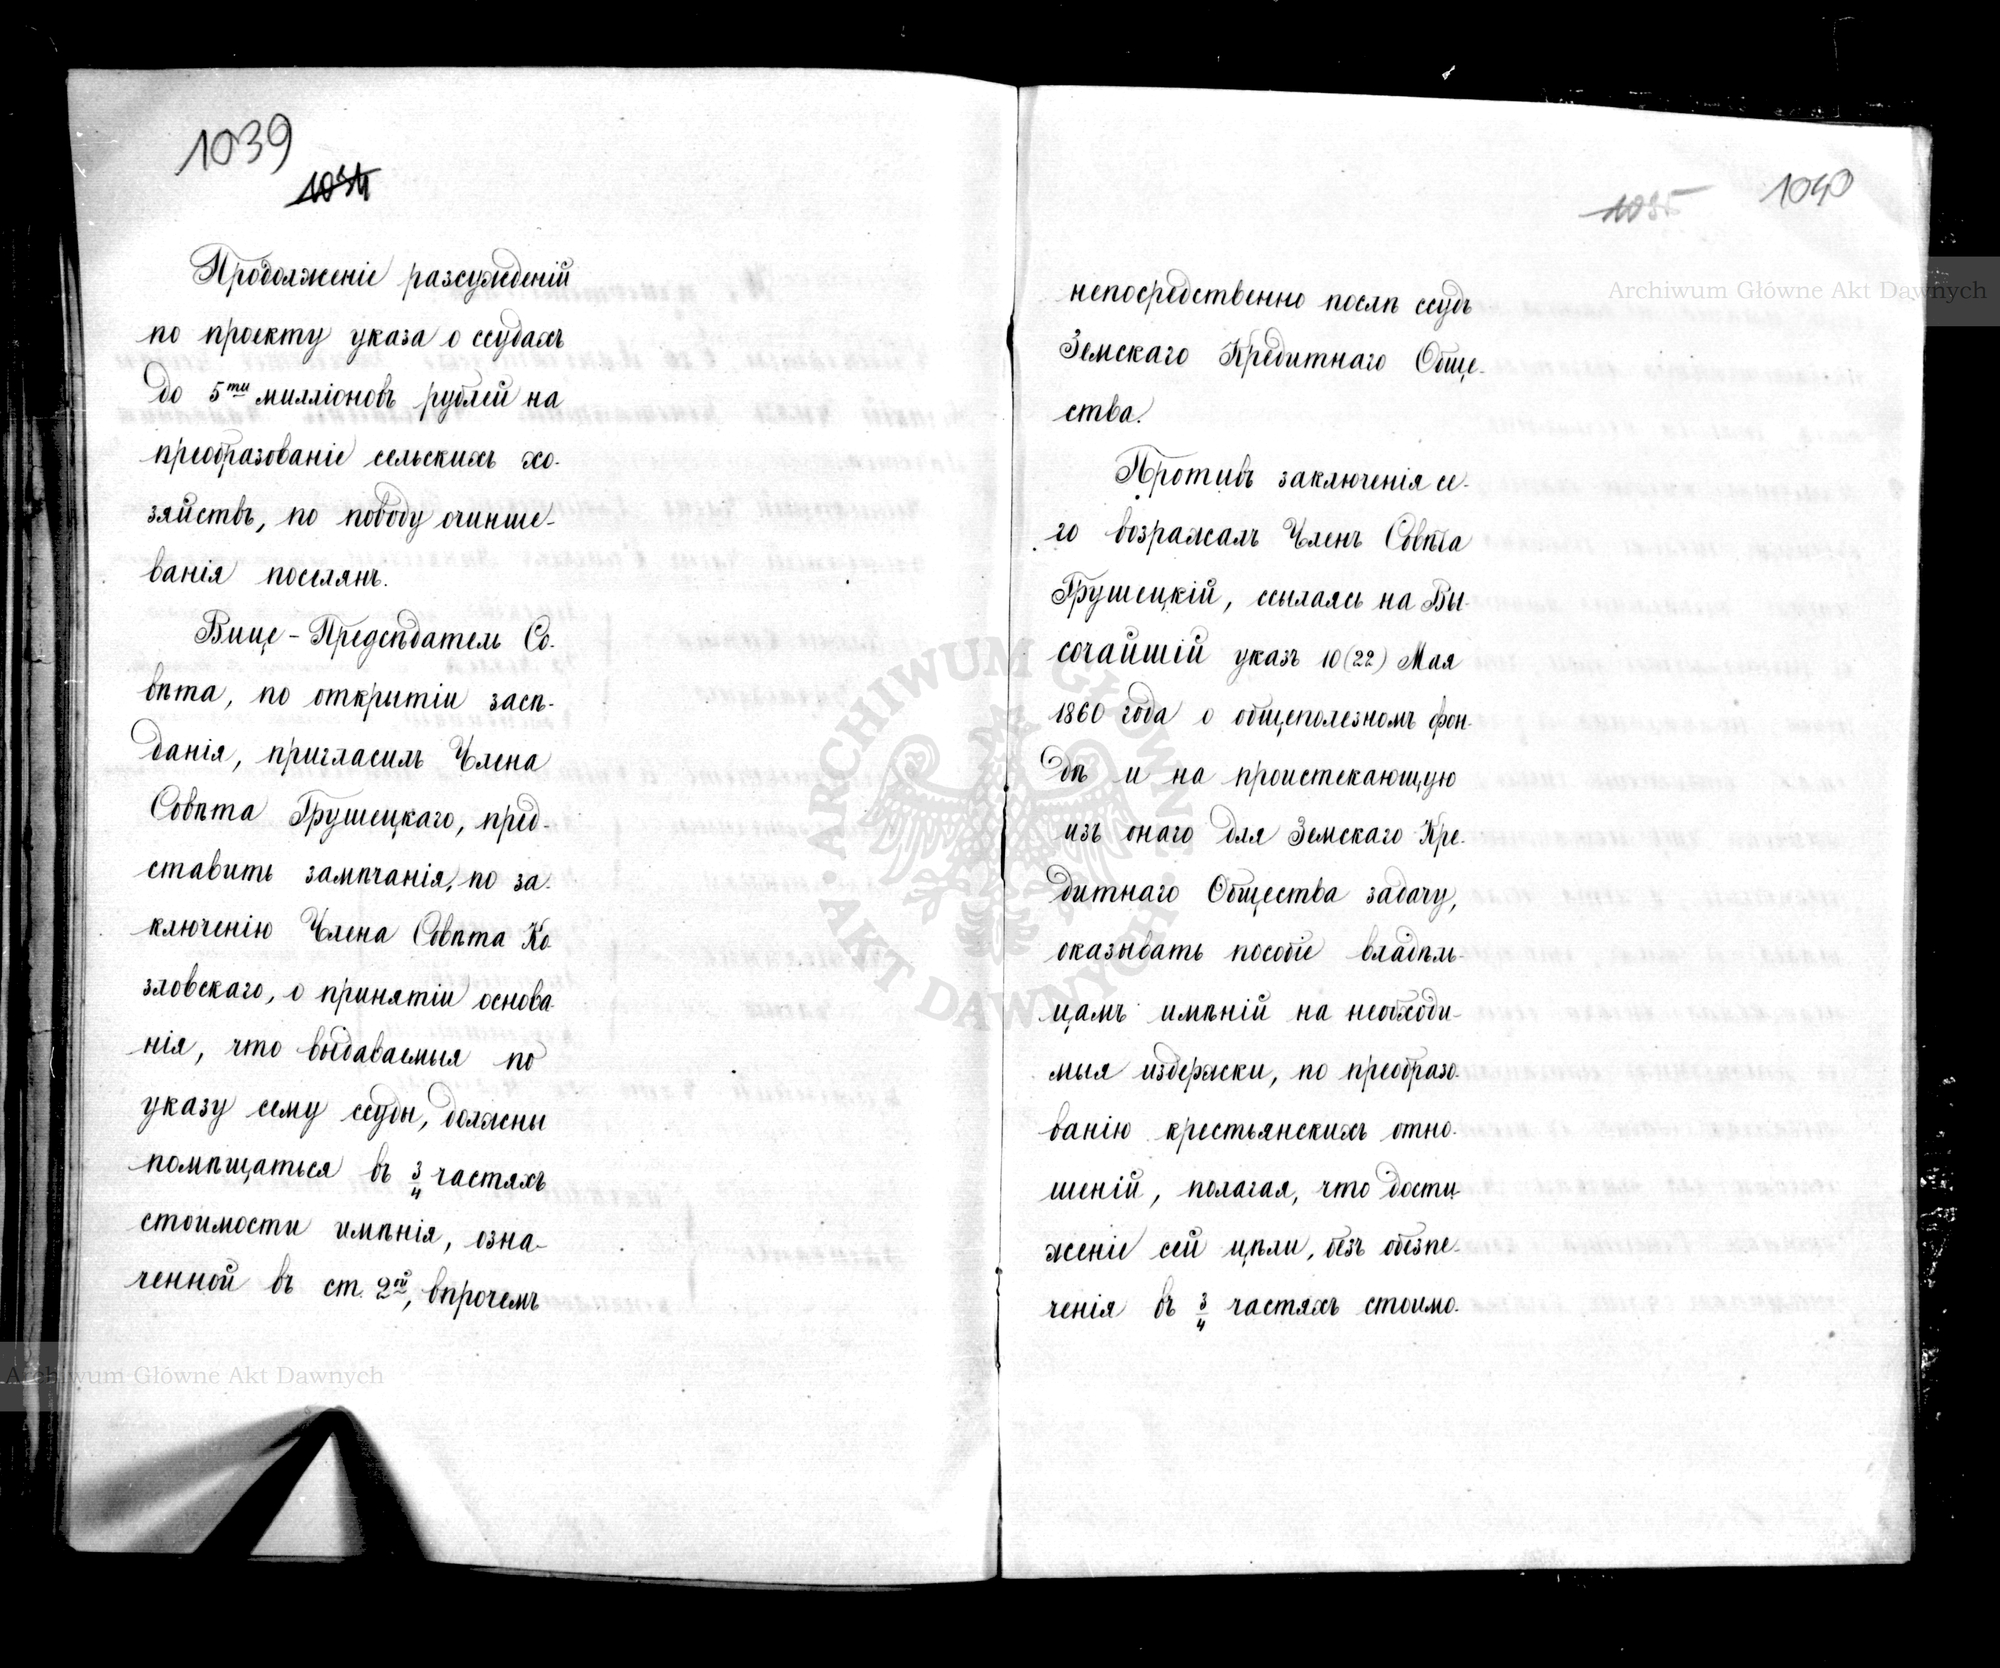 1039
1034
Продолженіе разсужденій
по проекту указа о ссудахъ
до 5ти милліоновъ рублей на
преобразованіе сельскихъ хо-
зяйствъ, по поводу очинше-
ванія поселянъ.
Вице-Предсѣдатель Со-
вѣта, по открытіи засѣ-
данія, пригласилъ Члена
Совѣта Грушецкаго, пред-
ставить замѣчанія, по за-
ключенію Члена Совѣта Ко-
зловскаго, о принятіи основа
нія, что выдаваемыя по
указу сему ссуды, должны
помѣщаться въ 3/4 частяхъ
стоимости имѣнія, озна-
ченной въ ст. 2ой, впрочемъ
1040
1035
непосредственно послѣ ссудъ
Земскаго Кредитнаго Обще-
ства.
Противъ заключенія се-
го возражалъ Членъ Совѣта
Грушецкій, ссылаясь на Вы-
сочайшій указъ 10 (22) Мая
1860 года о общеполезномъ фон-
дѣ и на проистекающую
изъ онаго для Земскаго Кре-
дитнаго Общества задачу,
оказывать пособіе владѣль-
цамъ имѣній на необходи-
мыя издержки, по преобразо-
ванію крестьянскихъ отно-
шеній, полагая, что дости
женіе сей цѣли, безъ обезпе-
ченія въ 3/4 частяхъ стоимо-
Archiwum Główne Akt Dawnych
ARCHIWUM GŁÓWNE AKT DAWNYCH
Archiwum Główne Akt Dawnych